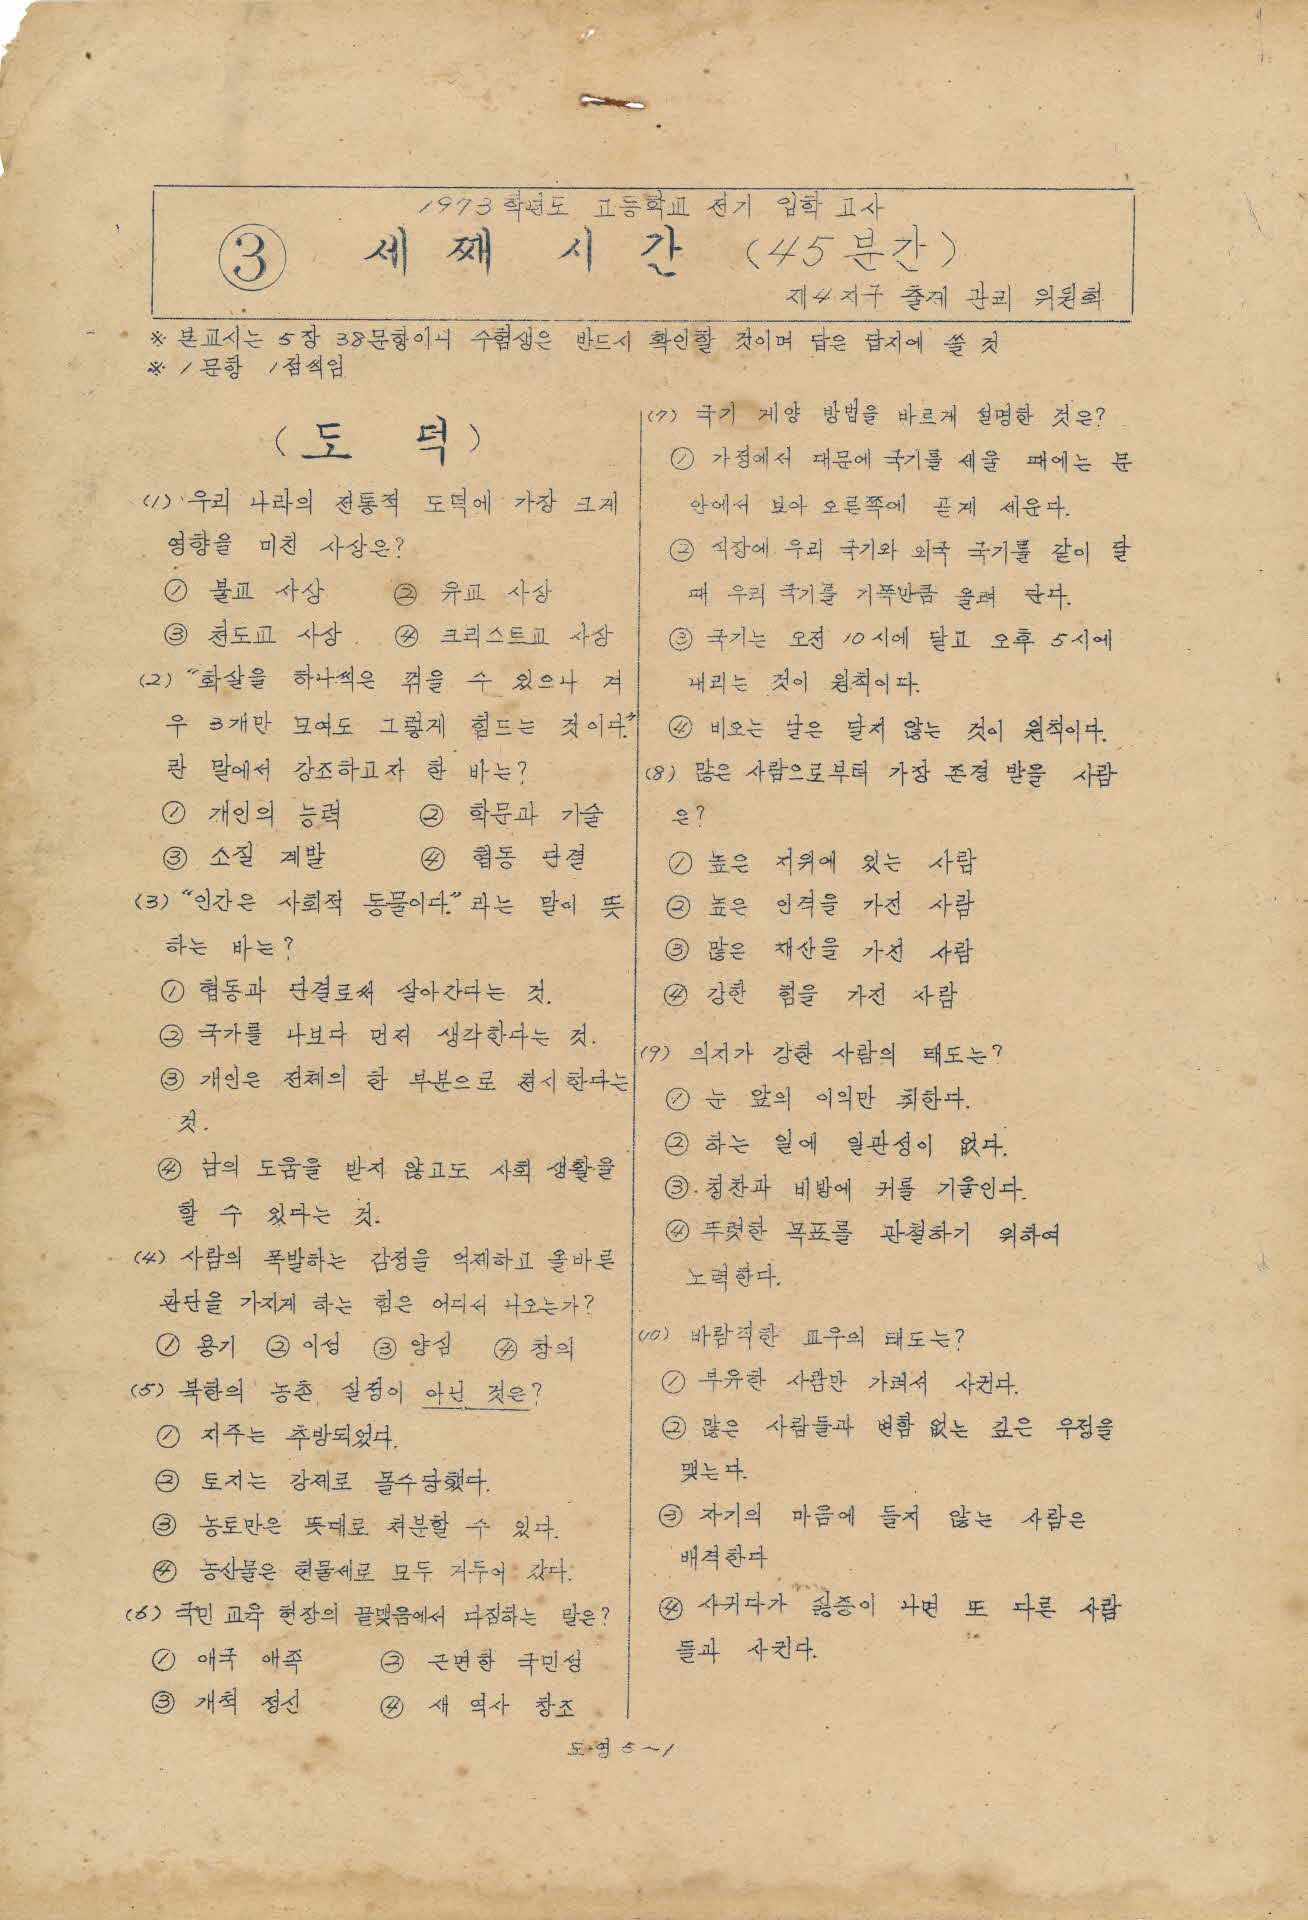 1973학년도 고등학교 전기 입학 고사
③ 세째 시간 (45분간)
제4지구 출제 관리 위원회
※ 본교시는 5장 38문항이니 수험생은 반드시 확인할 것이며 답은 답지에 쓸 것
※ 1문항 1점씩임
(도 덕)
(1) 우리 나라의 전통적 도덕에 가장 크게
영향을 미친 사상은?
① 불교 사상 ② 유교 사상
③ 천도교 사상 ④ 크리스트교 사상
(2) "화살을 하나씩은 꺾을 수 있으나 겨
우 3개만 모여도 그렇게 힘드는 것이다."
란 말에서 강조하고자 한 바는?
① 개인의 능력 ② 학문과 기술
③ 소질 계발 ④ 협동 단결
(3) "인간은 사회적 동물이다."라는 말이 뜻
하는 바는?
① 협동과 단결로써 살아간다는 것.
② 국가를 나보다 먼저 생각한다는 것.
③ 개인은 전체의 한 부분으로 천시한다는
것.
④ 남의 도움을 받지 않고도 사회 생활을
할 수 있다는 것.
(4) 사람의 폭발하는 감정을 억제하고 올바른
판단을 가지게 하는 힘은 어디서 나오는가?
① 용기 ② 이성 ③ 양심 ④ 창의
(5) 북한의 농촌 실정이 아닌 것은?
① 지주는 추방되었다.
② 토지는 강제로 몰수당했다.
③ 농토만은 뜻대로 처분할 수 있다.
④ 농산물은 현물세로 모두 거두어 갔다.
(6) 국민 교육 헌장의 끝맺음에서 다짐하는 말은?
① 애국 애족 ② 근면한 국민성
③ 개척 정신 ④ 새 역사 창조
(7) 국기 게양 방법을 바르게 설명한 것은?
① 가정에서 대문에 국기를 세울 때에는 문
안에서 보아 오른쪽에 곧게 세운다.
② 식장에 우리 국기와 외국 국기를 같이 달
때 우리 국기를 기폭만큼 올려 단다.
③ 국기는 오전 10시에 달고 오후 5시에
내리는 것이 원칙이다.
④ 비오는 날은 달지 않는 것이 원칙이다.
(8) 많은 사람으로부터 가장 존경 받을 사람
은?
① 높은 지위에 있는 사람
② 높은 인격을 가진 사람
③ 많은 재산을 가진 사람
④ 강한 힘을 가진 사람
(9) 의지가 강한 사람의 태도는?
① 눈 앞의 이익만 취한다.
② 하는 일에 일관성이 없다.
③ 칭찬과 비방에 귀를 기울인다.
④ 뚜렷한 목표를 관철하기 위하여
노력한다.
(10) 바람직한 교우의 태도는?
① 부유한 사람만 가려서 사귄다.
② 많은 사람들과 변함 없는 깊은 우정을
맺는다.
③ 자기의 마음에 들지 않는 사람은
배격한다
④ 사귀다가 싫증이 나면 또 다른 사람
들과 사귄다.
도·영 5~1